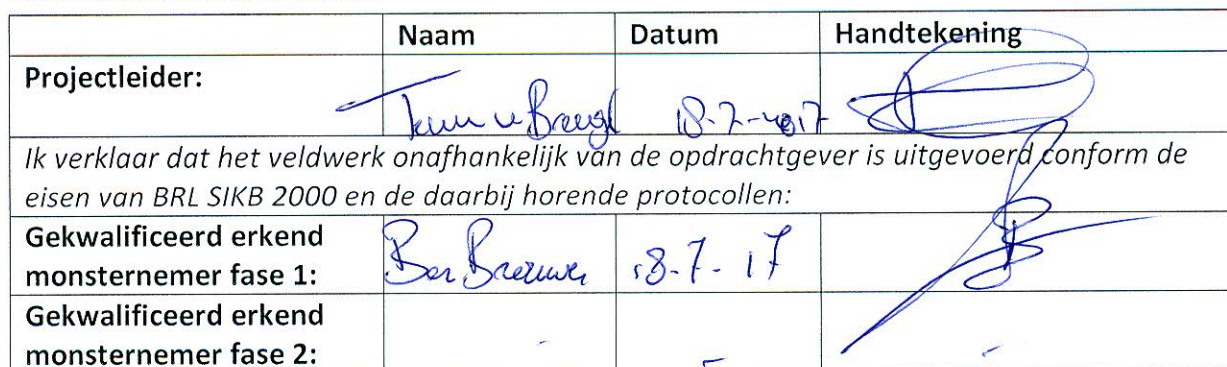 Naam Datum Handtekening
Projectleider:
18-7-2017
Ik verklaar dat het veldwerk onafhankelijk van de opdrachtgever is uitgevoerd conform de
eisen van BRL SIKB 2000 en de daarbij horende protocollen:
Gekwalificeerd erkend
monsternemer fase 1: Brouwer 18-7-17
Gekwalificeerd erkend
monsternemer fase 2: